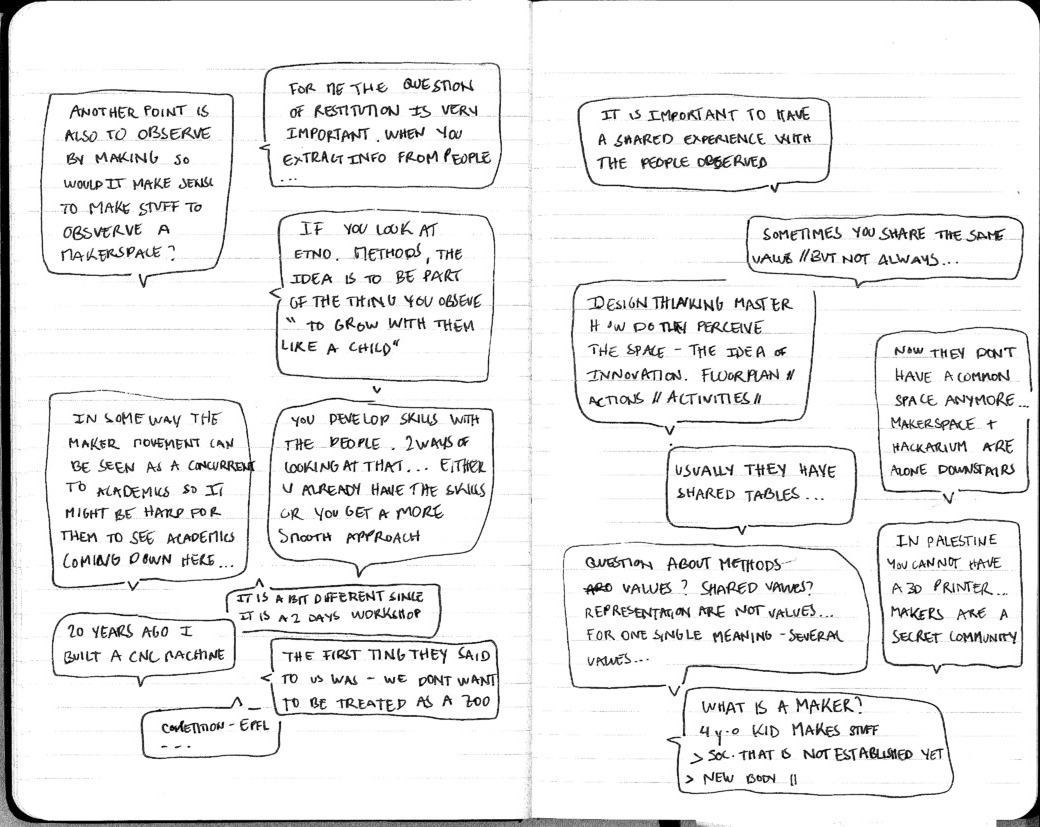 ANOTHER POINT IS
ALSO TO OBSERVE
BY MAKING SO
WOULD IT MAKE SENSE
TO MAKE STUFF TO
OBSVERVE A
MAKERSPACE?
FOR ME THE QUESTION
OF RESTITUTION IS VERY
IMPORTANT. WHEN YOU
EXTRACT INFO FROM PEOPLE
...
IF YOU LOOK AT
ETNO. METHODS, THE
IDEA IS TO BE PART
OF THE THING YOU OBSEVE
" TO GROW WITH THEM
LIKE A CHILD"
IN SOME WAY THE
MAKER MOVEMENT CAN
BE SEEN AS A CONCURRENT
TO ACADEMICS SO IT
MIGHT BE HARD FOR
THEM TO SEE ACADEMICS
COMING DOWN HERE...
YOU DEVELOP SKILLS WITH
THE PEOPLE. 2 WAYS OF
LOOKING AT THAT... EITHER
U ALREADY HAVE THE SKILLS
OR YOU GET A MORE
SMOOTH APPROACH
IT IS A BIT DIFFERENT SINCE
IT IS A 2 DAYS WORKSHOP
20 YEARS AGO I
BUILT A CNC MACHINE
THE FIRST TING THEY SAID
TO US WAS - WE DONT WANT
TO BE TREATED AS A ZOO
- EPFL
- - -
IT IS IMPORTANT TO HAVE
A SHARED EXPERIENCE WITH
THE PEOPLE OBSERVED
SOMETIMES YOU SHARE THE SAME
VALUE // BUT NOT ALWAYS...
DESIGN THINKING MASTER
HOW DO THEY PERCEIVE
THE SPACE - THE IDEA OF
INNOVATION. FLOORPLAN //
ACTIONS // ACTIVITIES //
NOW THEY DON'T
HAVE A COMMON
SPACE ANYMORE...
MAKERSPACE +
HACKARIUM ARE
ALONE DOWNSTAIRS
USUALLY THEY HAVE
SHARED TABLES...
QUESTION ABOUT METHODS
VALUES? SHARED VALUES?
REPRESENTATION ARE NOT VALUES...
FOR ONE SINGLE MEANING - SEVERAL
VALUES...
IN PALESTINE
YOU CANNOT HAVE
A 3D PRINTER...
MAKERS ARE A
SECRET COMMUNITY
WHAT IS A MAKER?
4 y.o KID MAKES STUFF
> SOC. THAT IS NOT ESTABLISHED YET
> NEW BODY //